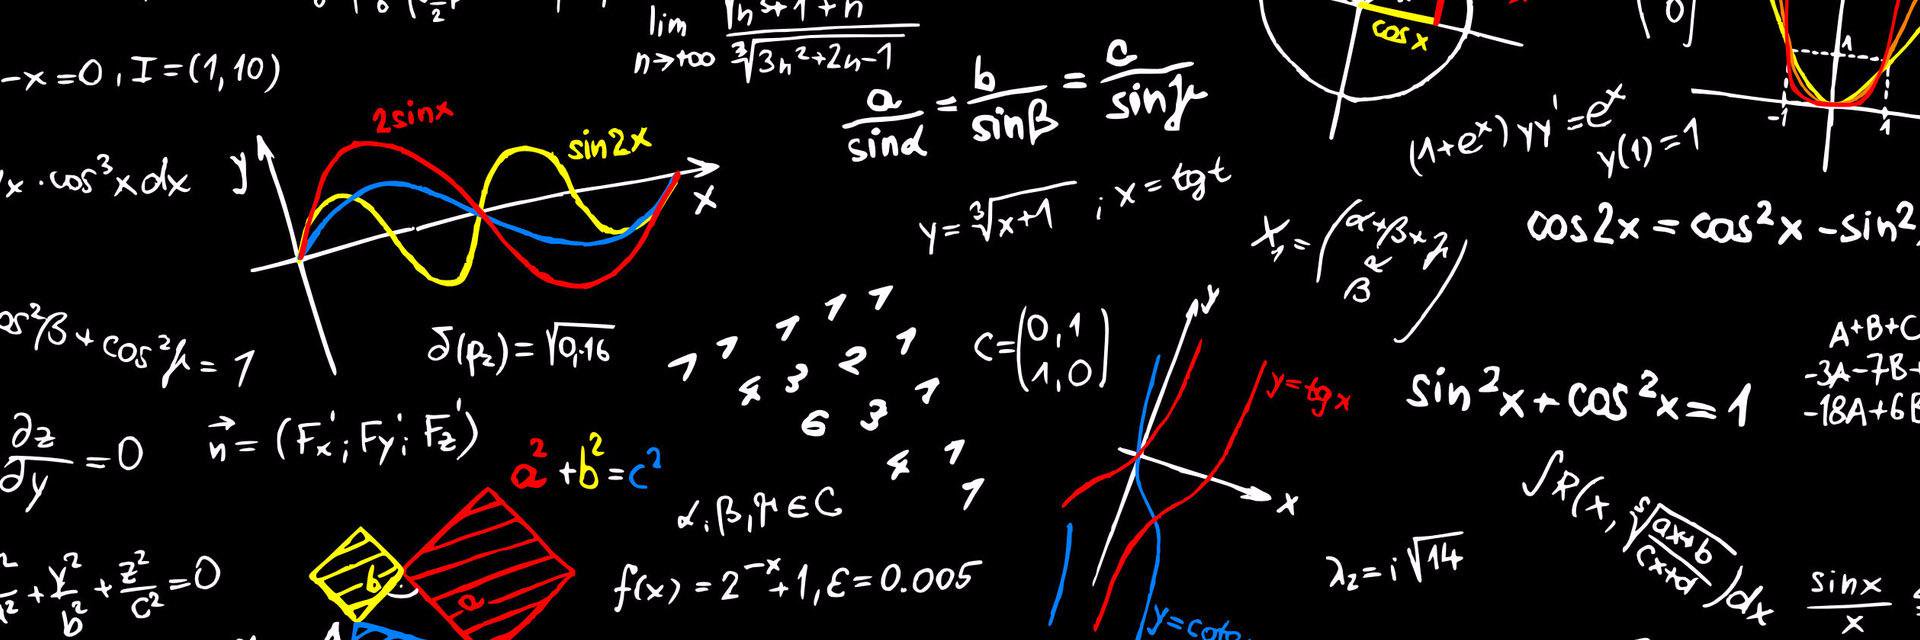 lim n→+∞ √n³+1+n / ∛3n²+2n-1
-x=0, I=(1,10)
cos x
a/sinα = b/sinβ = c/sinγ
(1+eˣ)yy'=eˣ
y(1)=1
1
-1 1
2sinx
sin2x
y
x
x·cos³xdx
y=∛x+1 ; x=tgt
X₁=(α+β+γ
cos2x=cos²x-sin²
cos²β+cos²γ=1
δ(p₂)=√0,16
1 1 1 1 1
4 3 2 1
6 3 1
4 1
1
C=(0,1
1,0)
y
x
y=tgx
A+B+C
-3A-7B+
-18A+6B
sin²x+cos²x=1
∂z/∂y=0
n⃗=(Fx';Fy';Fz')
a²+b²=c²
α,β,γ∈C
∫R(x, ⁵√ax+b/cx+d)dx
+y²/b²+z²/c²=0
b
a
f(x)=2⁻ˣ+1,ε=0.005
λ₂=i√14
sinx/x